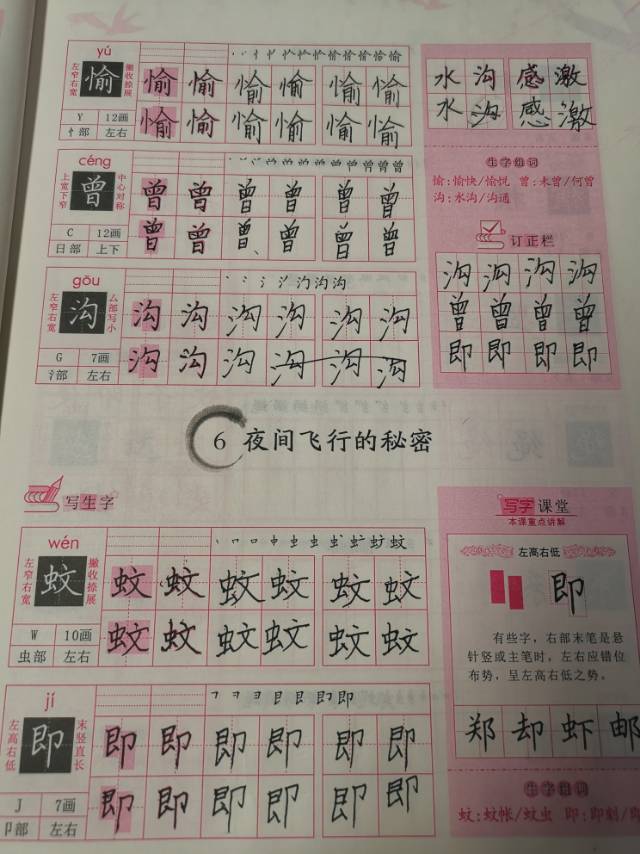 yú
左窄右宽
愉
撇收捺展
愉愉愉愉愉愉
Y 12画
忄部 左右
愉愉愉愉愉愉
céng
上宽下窄
曾
中心对称
曾曾曾曾曾曾
C 12画
日部 上下
曾曾曾曾曾曾
gōu
左窄右宽
沟
厶部写小
沟沟沟沟沟沟
G 7画
氵部 左右
沟沟沟沟沟沟
水沟 感激
水沟 感激
生字组词
愉:愉快/愉悦 曾:未曾/何曾
沟:水沟/沟通
订正栏
沟沟沟沟
曾曾曾曾
即即即即
6 夜间飞行的秘密
写生字
wén
左窄右宽
蚊
撇收捺展
蚊蚊蚊蚊蚊蚊
W 10画
虫部 左右
蚊蚊蚊蚊蚊蚊
jí
左高右低
即
末竖直长
即即即即即即
J 7画
卩部 左右
即即即即即即
写字课堂
本课重点讲解
左高右低
即
有些字，右部末笔是悬
针竖或主笔时，左右应错位
布势，呈左高右低之势。
郑却虾邮
生字组词
蚊:蚊帐/蚊虫 即:即刻/即